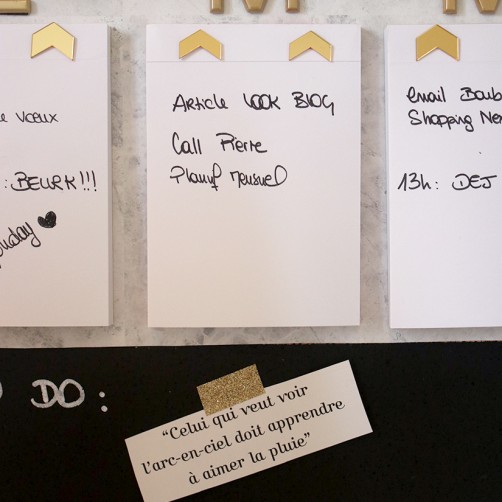 Voeux
: BEURK!!!
Article LOOK BLOG
Call Pierre
Planif Mensuel
email
Shopping
13h: DEJ
DO:
“Celui qui veut voir
l'arc-en-ciel doit apprendre
à aimer la pluie”